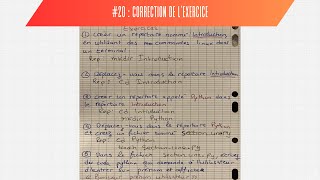 #20 : CORRECTION DE L'EXERCICE
Exercice:
① Créer un répertoire nommé Introduction
en utilisant des commandes Linux dans
un terminal.
Rep: mkdir Introduction
② Déplacez-vous dans le répertoire Introduction
Rep: cd Introduction
③ Créer un répertoire appelé Python dans
le répertoire Introduction
Rep: cd Introduction
mkdir Python
④ Déplacez-vous dans le répertoire Python
et créez un fichier nommé
Rep: cd Python
⑤ Dans le fichier écrivez
de code python qui demande à l'utilisateur
d'entrer son prénom et affichez